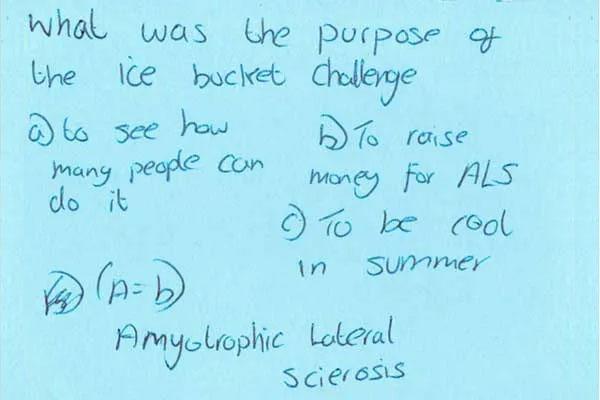 what was the purpose of
the ice bucket challenge
a) to see how
many people can
do it
b) To raise
money for ALS
c) To be cool
in summer
(A=b)
Amyotrophic Lateral
Scierosis